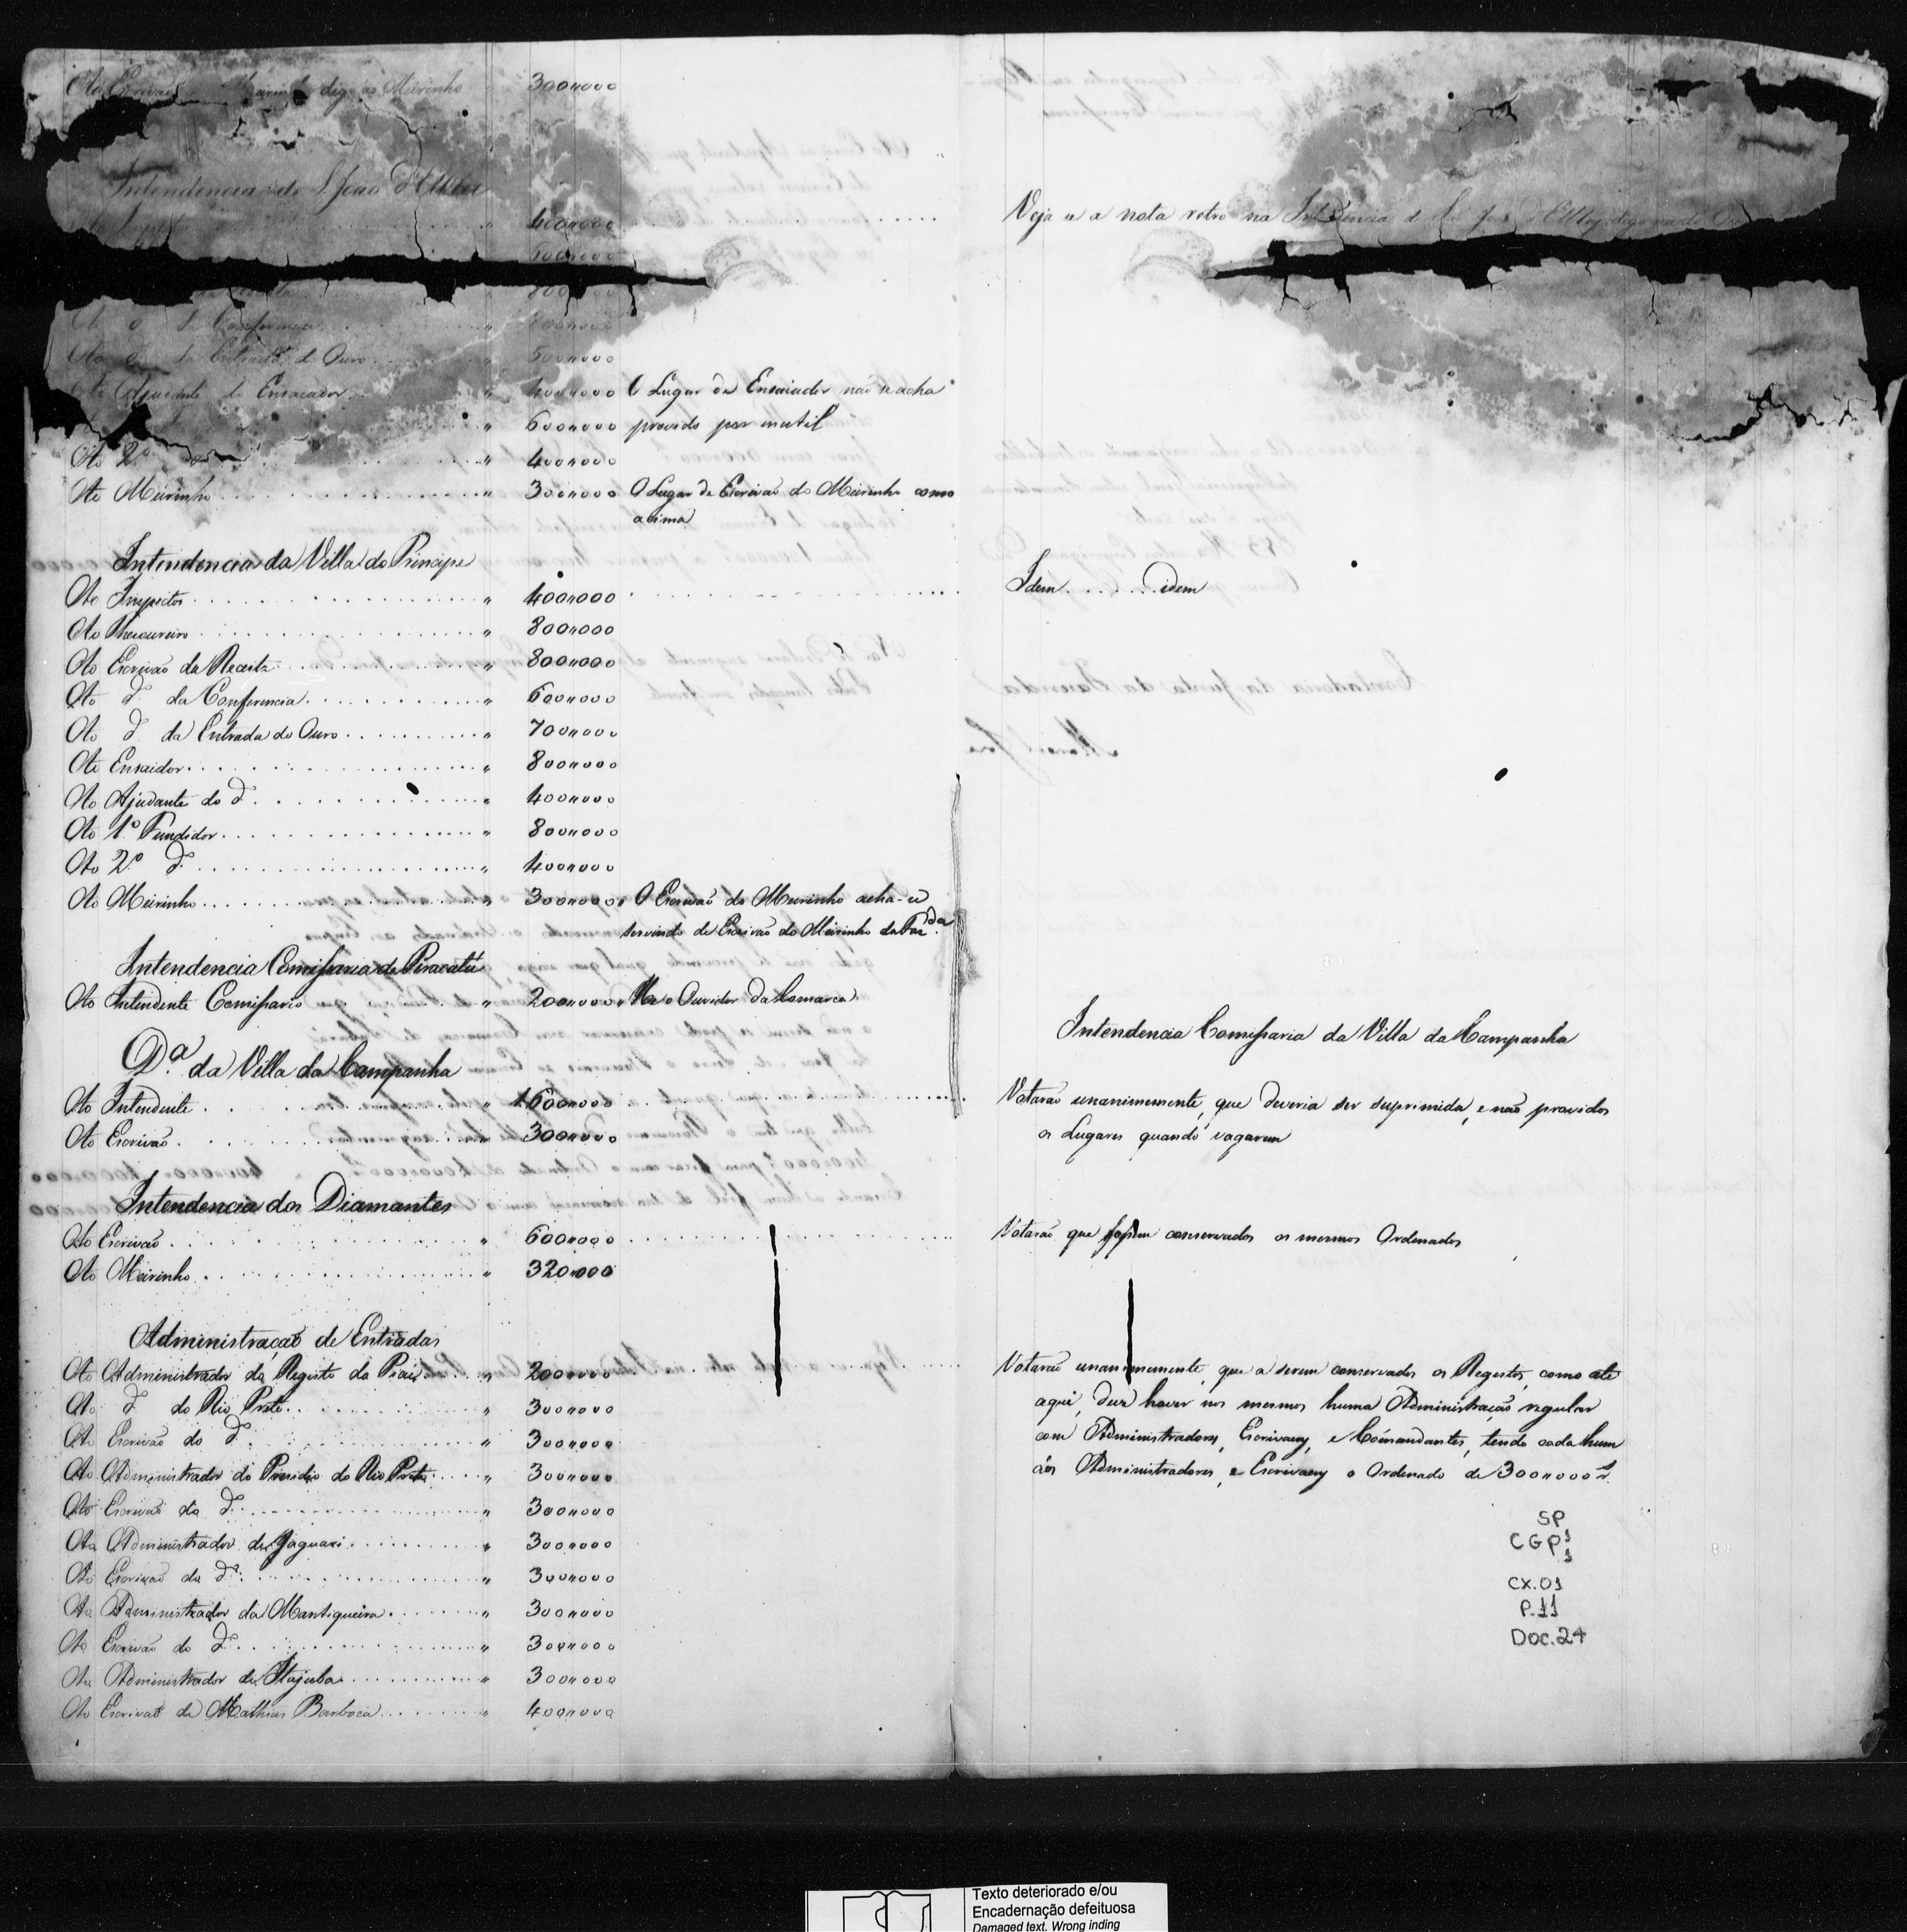 Ao Escrivaõ Meirinho digo ao Meirinho " 300"000
Intendencia de S. Joaõ d'ElRei
" 400"000
500"000
800"000
Ao d.º da Conferencia
Ao d.º da Entrada do Ouro 500"000
Ao Ajudante do Ensaiador " 400"000 O Lugar de Ensaiador naõ se acha
" 600"000 provido por inutil
Ao 2º d.º " 400"000
Ao Meirinho " 300"000 O Lugar de Escrivaõ do Meirinho como
acima
Intendencia da Villa do Principe
Ao Inspector " 400"000
Ao Thesoureiro " 800"000
Ao Escrivaõ da Receita " 800"000
Ao d.º da Conferencia " 600"000
Ao d.º da Entrada do Ouro " 700"000
Ao Ensaidor " 800"000
Ao Ajudante do d.º " 400"000
Ao 1º Fundidor " 800"000
Ao 2º d.º " 400"000
Ao Meirinho " 300"000 O Escrivaõ do Meirinho acha-se
servindo de Escrivaõ do Meirinho da Faz.da
Intendencia Comissaria de Paracatú
Ao Intendente Comissario " 200"000 He o Ouvidor da Comarca
D.ª da Villa da Campanha
Ao Intendente " 1.600"000
Ao Escrivaõ " 300"000
Intendencia dos Diamantes
Ao Escrivaõ " 600"000
Ao Meirinho " 320"000
Administraçaõ de Entradas
Ao Administrador do Registo do " 200"000
Ao d.º do Rio Preto " 300"000
Ao Escrivaõ do d.º " 300"000
Ao Administrador do Presidio do Rio Preto " 300"000
Ao Escrivaõ do d.º " 300"000
Ao Administrador de Jaguari " 300"000
Ao Escrivaõ do d.º " 300"000
Ao Administrador da Mantiqueira " 300"000
Ao Escrivaõ do d.º " 300"000
Ao Administrador de Itajuba " 300"000
Ao Escrivaõ de Mathias Barboza " 400"000
Veja se a nota retro na Intendencia de S. Joaõ d'ElRey, digo na do
Idem idem
Intendencia Comissaria da Villa da Campanha
Votaraõ unanimemente, que deveria ser suprimida, e naõ providos
os Lugares quando vagarem
Votaraõ que fossem conservados os mesmos Ordenados
Votaraõ unanimemente, que a serem conservados os Registos, como até
aqui, deve haver nos mesmos huma Administraçaõ regular
com Administradores, Escrivaens, e Comandantes, tendo cada hum
dos Administradores, e Escrivaens o Ordenado de 300"000 r.s
SP
CGP¹
1
CX.01
P.11
Doc.24
Texto deteriorado e/ou
Encadernação defeituosa
Damaged text. Wrong inding